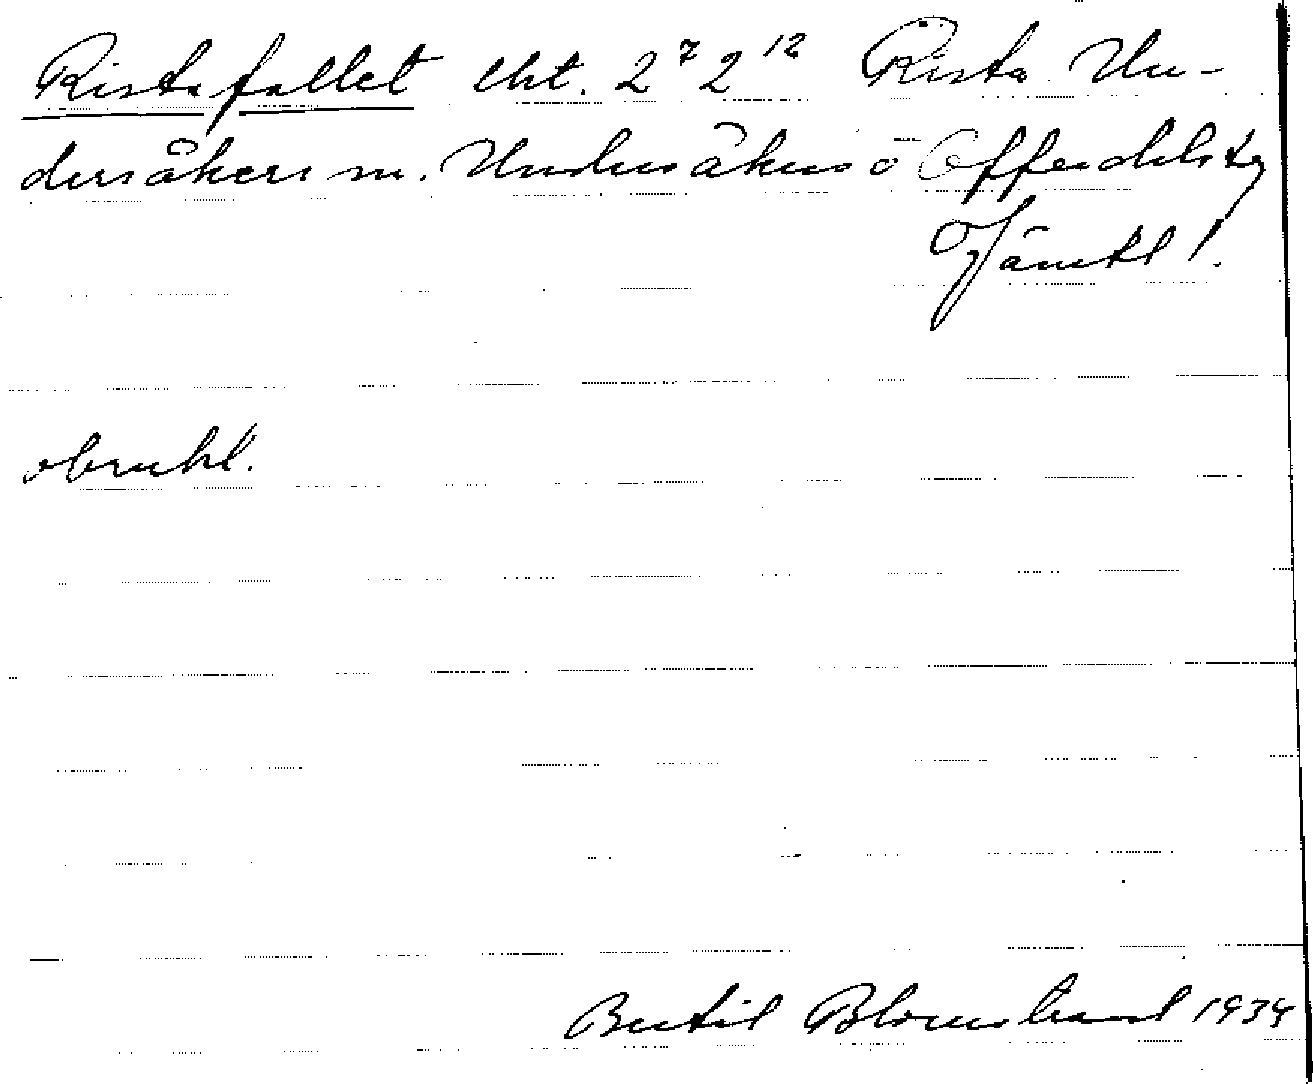 Ristafallet lht. 2⁷ 2¹² Rista Un-
dersåkers sn. Undersåkers o Offerdals tg
Jämtl l.
obrukl.
Bertil Blomstrand 1934